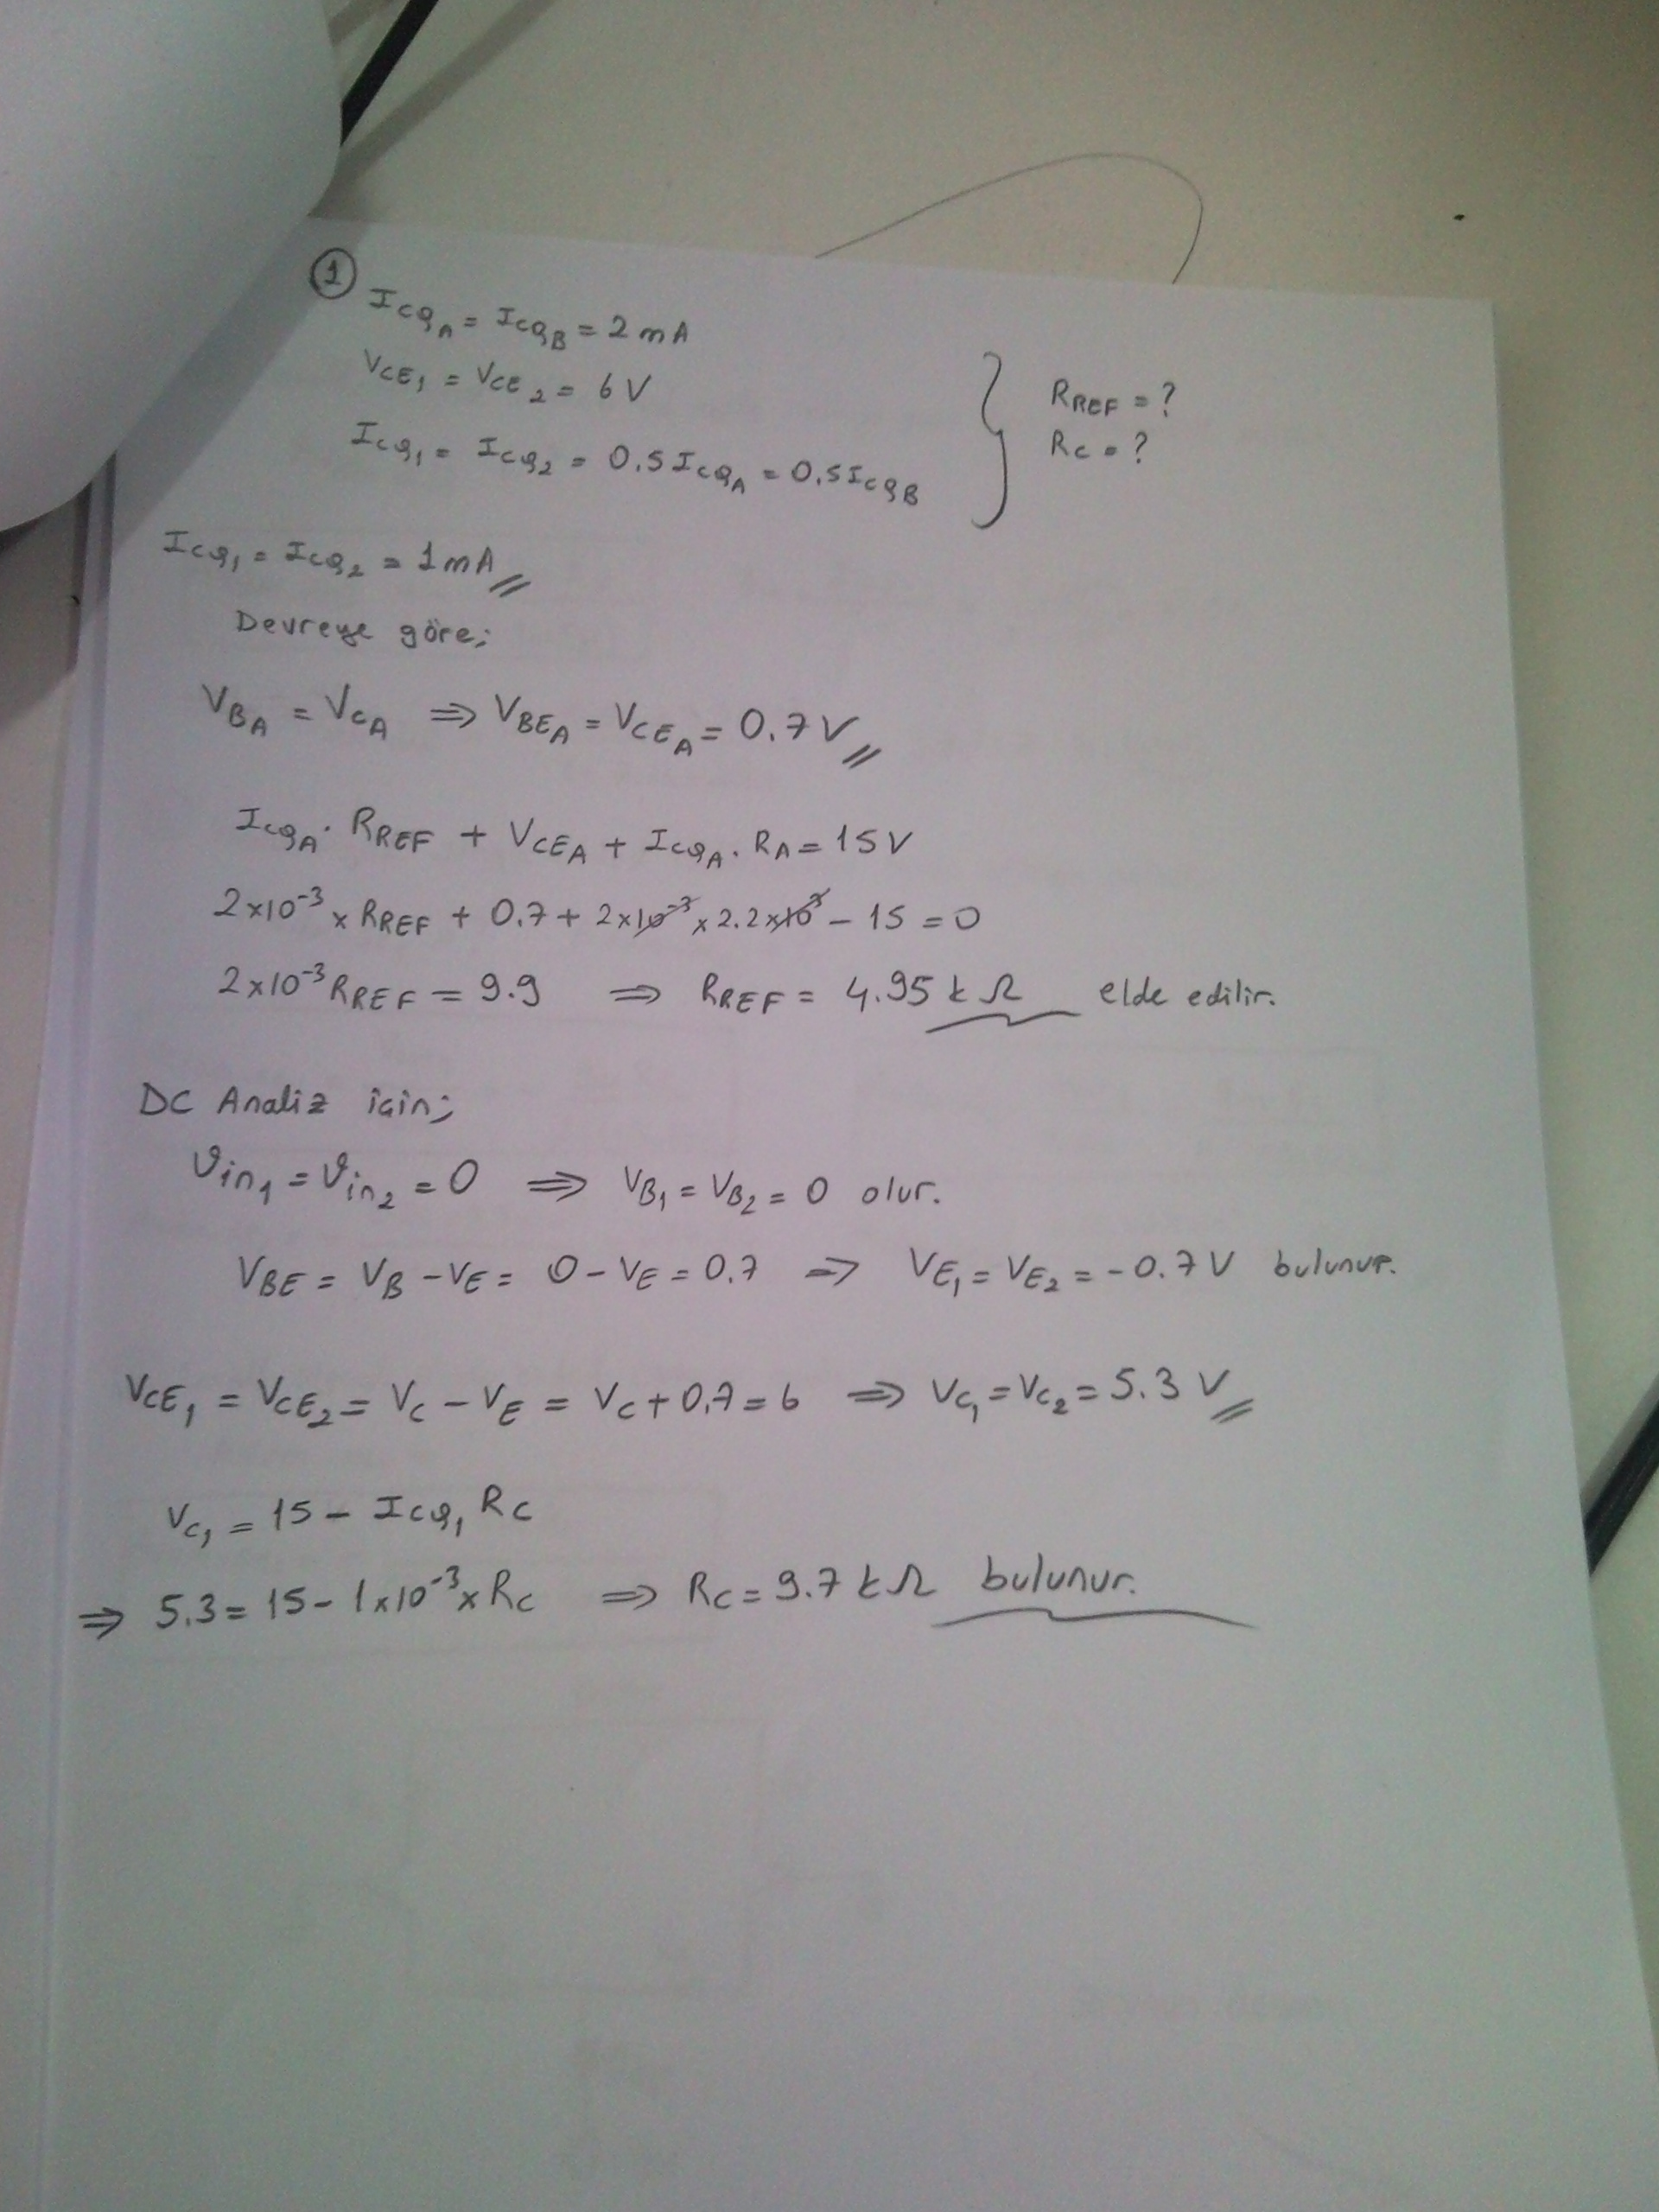 1
I_CQA = I_CQB = 2 mA
V_CE1 = V_CE2 = 6 V
I_CQ1 = I_CQ2 = 0.5 I_CQA = 0.5 I_CQB
R_REF = ?
R_C = ?
I_CQ1 = I_CQ2 = 1 mA
Devreye göre;
V_BA = V_CA ⇒ V_BEA = V_CEA = 0.7 V
I_CQA . R_REF + V_CEA + I_CQA . R_A = 15 V
2x10^-3 x R_REF + 0.7 + 2x10^-3 x 2.2x10^3 - 15 = 0
2x10^-3 R_REF = 9.9 ⇒ R_REF = 4.95 kΩ elde edilir.
DC Analiz için;
Vin1 = Vin2 = 0 ⇒ V_B1 = V_B2 = 0 olur.
V_BE = V_B - V_E = 0 - V_E = 0.7 ⇒ V_E1 = V_E2 = -0.7 V bulunur.
V_CE1 = V_CE2 = V_C - V_E = V_C + 0.7 = 6 ⇒ V_C1 = V_C2 = 5.3 V
V_C1 = 15 - I_CQ1 R_C
⇒ 5.3 = 15 - 1x10^-3 x R_C ⇒ R_C = 9.7 kΩ bulunur.